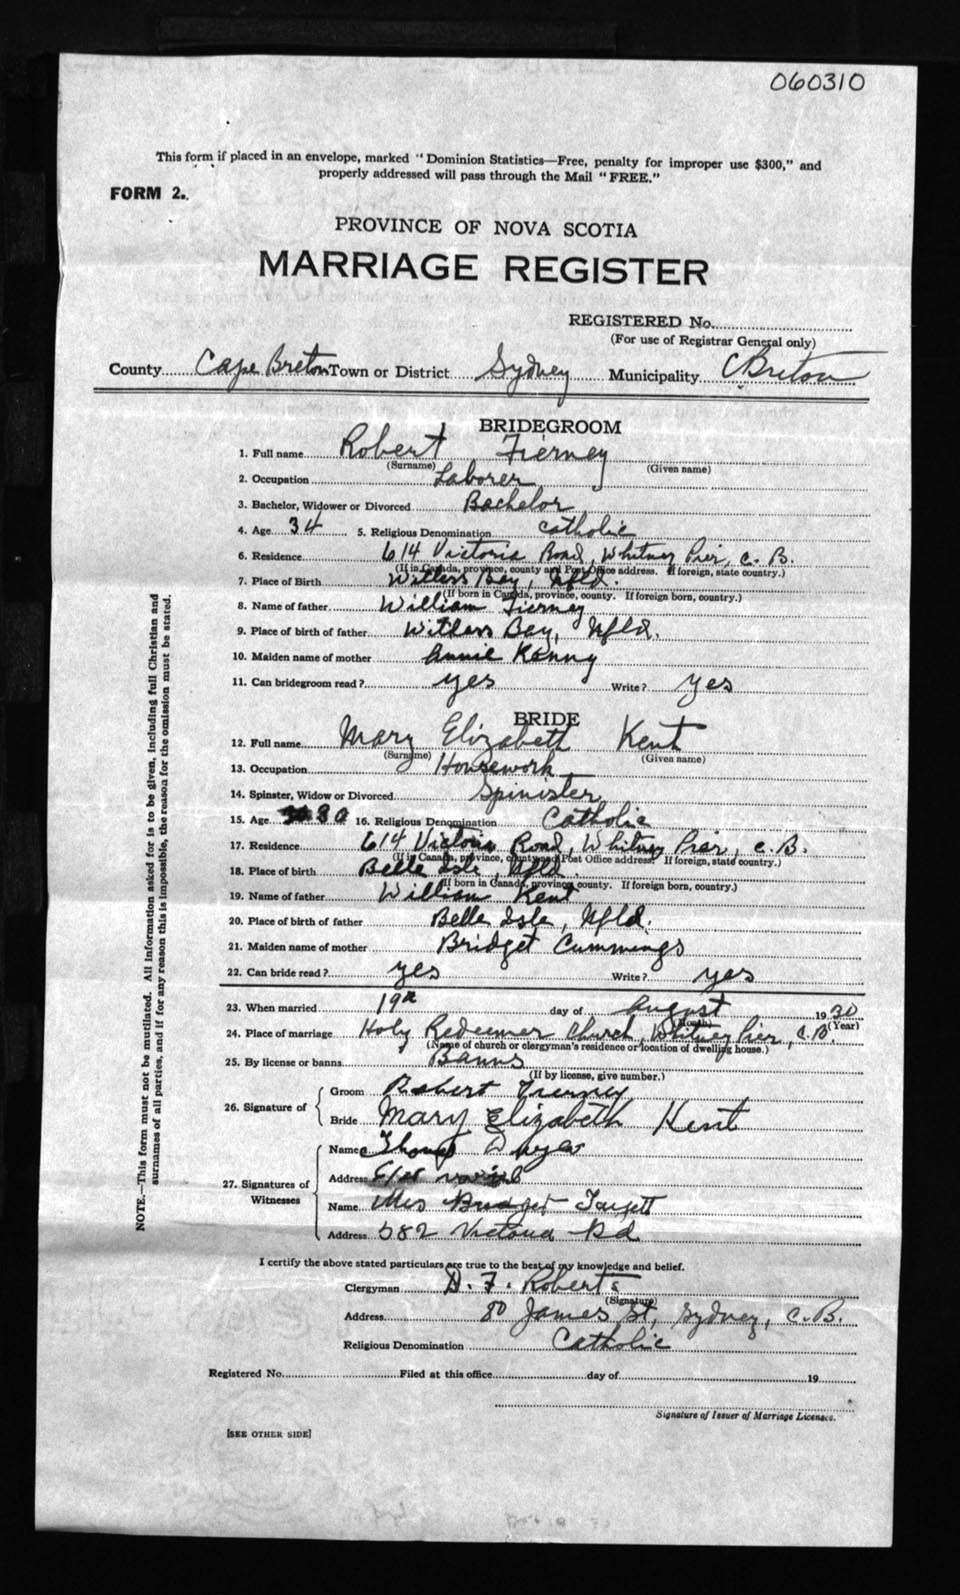 060310
This form if placed in an envelope, marked "Dominion Statistics—Free, penalty for improper use $300," and
properly addressed will pass through the Mail "FREE."
FORM 2.
PROVINCE OF NOVA SCOTIA
MARRIAGE REGISTER
REGISTERED No.
(For use of Registrar General only)
County Cape Breton Town or District Sydney Municipality C Breton
BRIDEGROOM
1. Full name Robert Tierney
(Surname) (Given name)
2. Occupation Laborer
3. Bachelor, Widower or Divorced Bachelor
4. Age 34 5. Religious Denomination Catholic
6. Residence 614 Victoria Road, Whitney Pier, C. B.
(If in Canada, province, county and Post Office address. If foreign, state country.)
7. Place of Birth Witless Bay, Nfld.
(If born in Canada, province, county. If foreign born, country.)
8. Name of father William Tierney
9. Place of birth of father Witless Bay, Nfld.
10. Maiden name of mother Annie Kenny
11. Can bridegroom read? yes Write? yes
BRIDE
12. Full name Mary Elizabeth Kent
(Surname) (Given name)
13. Occupation Housework
14. Spinster, Widow or Divorced Spinister
15. Age 30 16. Religious Denomination Catholic
17. Residence 614 Victoria Road, Whitney Pier, C. B.
(If in Canada, province, county and Post Office address. If foreign, state country.)
18. Place of birth Belle Isle, Nfld.
(If born in Canada, province county. If foreign born, country.)
19. Name of father William Kent
20. Place of birth of father Belle Isle, Nfld.
21. Maiden name of mother Bridget Cummings
22. Can bride read? yes Write? yes
23. When married 19th day of August 1930
(Month) (Year)
24. Place of marriage Holy Redeemer Church, Whitney Pier, C. B.
(Name of church or clergyman's residence or location of dwelling house.)
25. By license or banns Banns
(If by license, give number.)
26. Signature of Groom Robert Tierney
Bride Mary Elizabeth Kent
27. Signatures of Witnesses
Name Thomas Dwyer
Address
Name Mrs Bridget
Address 582 Victoria Rd
I certify the above stated particulars are true to the best of my knowledge and belief.
Clergyman D. F. Roberts
(Signature)
Address 80 James St, Sydney, C. B.
Religious Denomination Catholic
Registered No. Filed at this office day of 19
Signature of Issuer of Marriage Licenses.
[SEE OTHER SIDE]
NOTE.—This form must not be mutilated. All information asked for is to be given, including full Christian and
surnames of all parties, and if for any reason this is impossible, the reason for the omission must be stated.